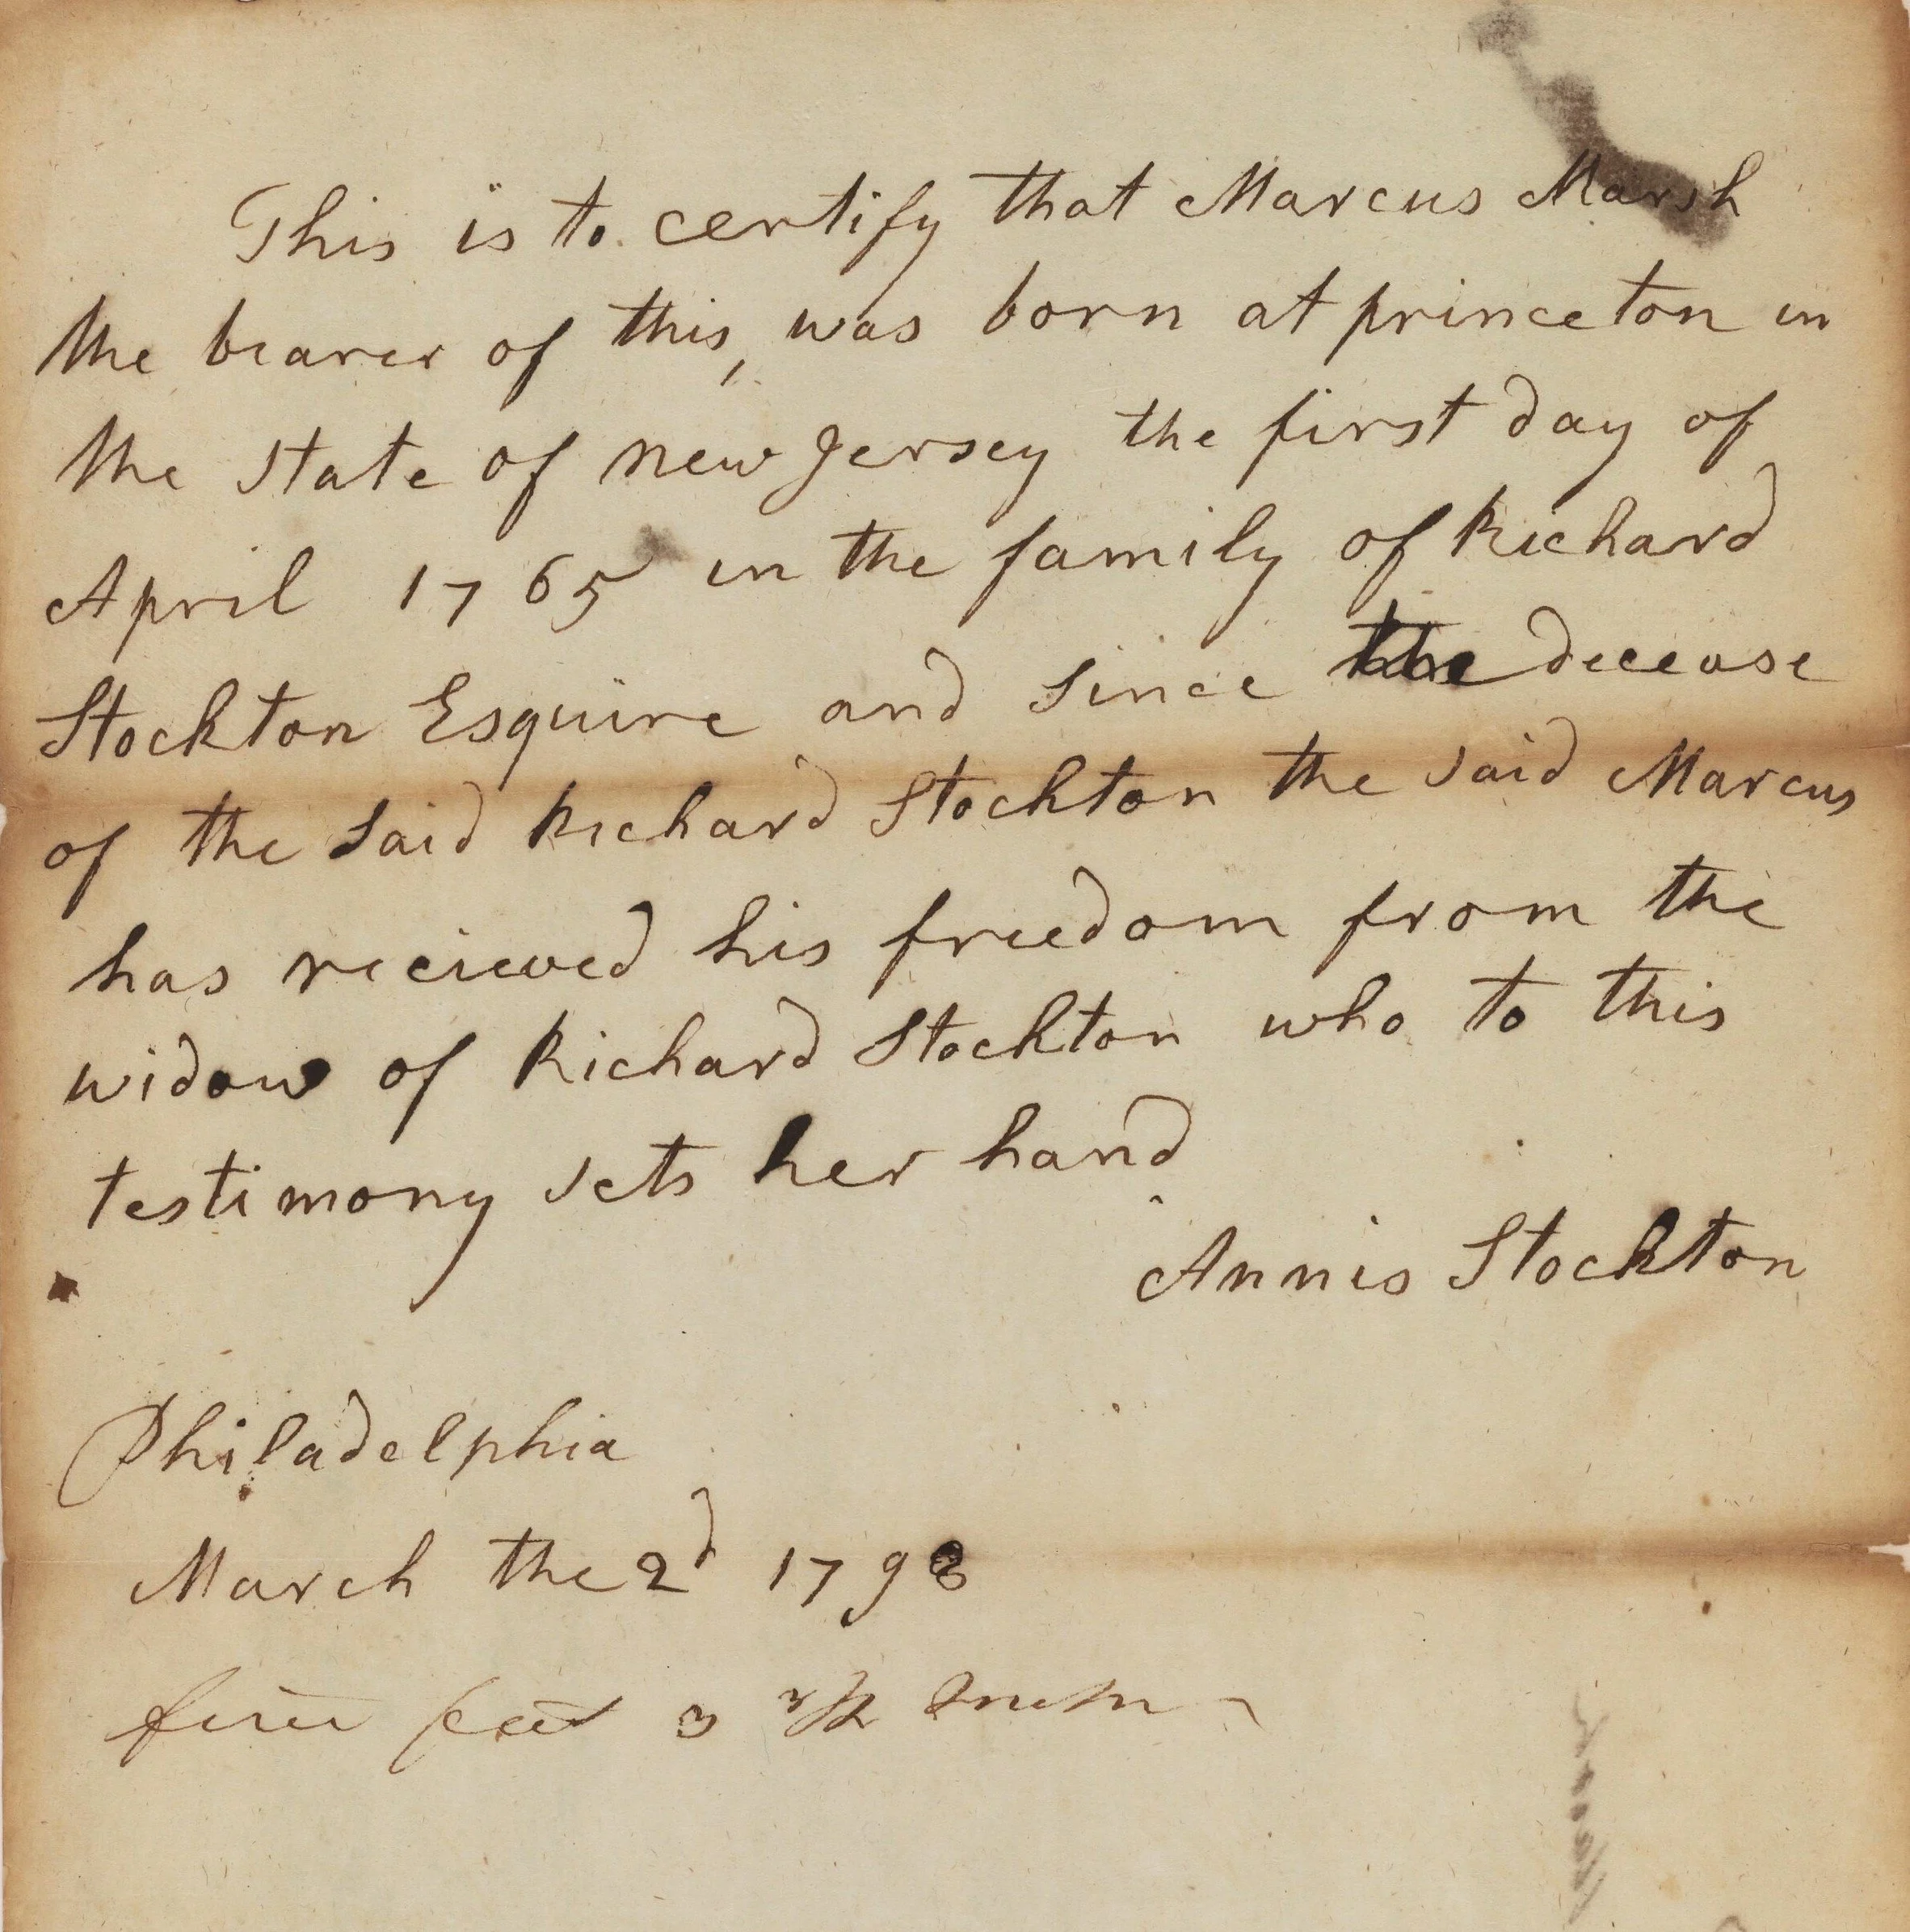 This is to certify that Marcus Marsh
the bearer of this, was born at princeton in
the state of new Jersey the first day of
April 1765 in the family of Richard
Stockton Esquire and since the decease
of the said Richard Stockton the said Marcus
has recieved his freedom from the
widow of Richard Stockton who to this
testimony sets her hand
Annis Stockton
Philadelphia
March the 2d 1798
feet 3